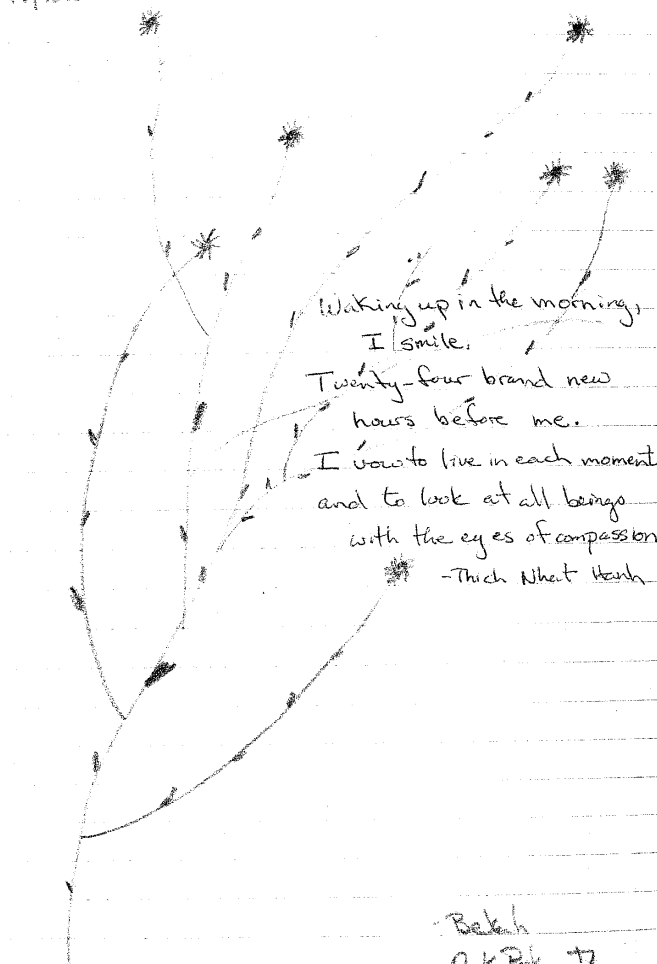 Waking up in the morning,
I smile.
Twenty-four brand new
hours before me.
I vow to live in each moment
and to look at all beings
with the eyes of compassion
-Thich Nhat Hanh